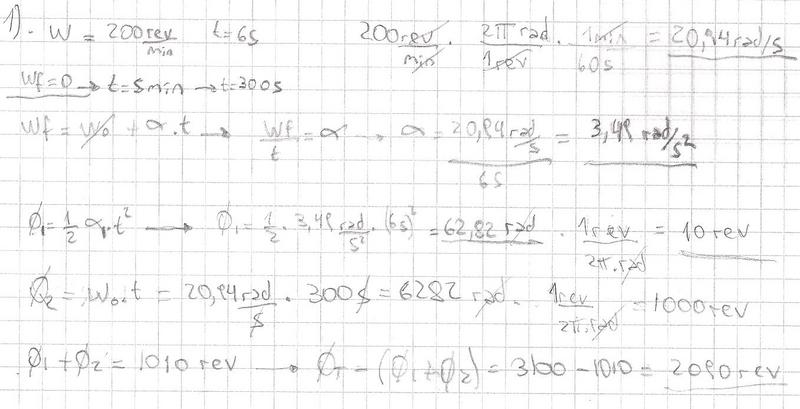 1). W = 200 rev/min t=6s 200 rev/min . 2π rad/1rev . 1min/60s = 20,94 rad/s
Wf=0 → t=5min → t=300s
Wf = W0 + α.t → Wf/t = α → α = 20,94 rad/s / 6s = 3,49 rad/s²
Ø1 = 1/2 α.t² → Ø1 = 1/2 . 3,49 rad/s² . (6s)² = 62,82 rad . 1rev/2π.rad = 10 rev
Ø2 = W0.t = 20,94 rad/s . 300s = 6282 rad . 1rev/2π.rad = 1000 rev
Ø1 + Ø2 = 1010 rev → ØT - (Ø1 + Ø2) = 3100 - 1010 = 2090 rev